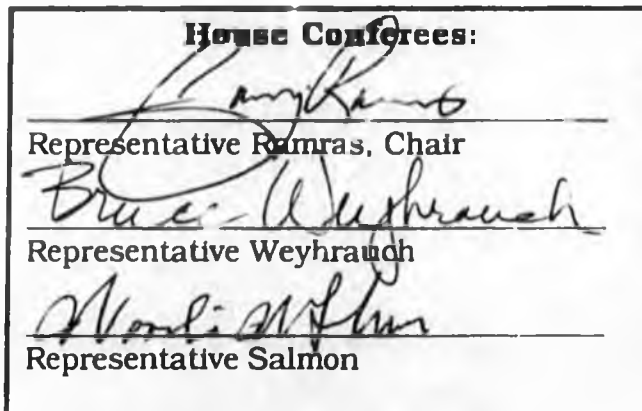 House Conferees:
Representative Ramras, Chair
Bruce Weyhrauch
Representative Weyhrauch
Representative Salmon